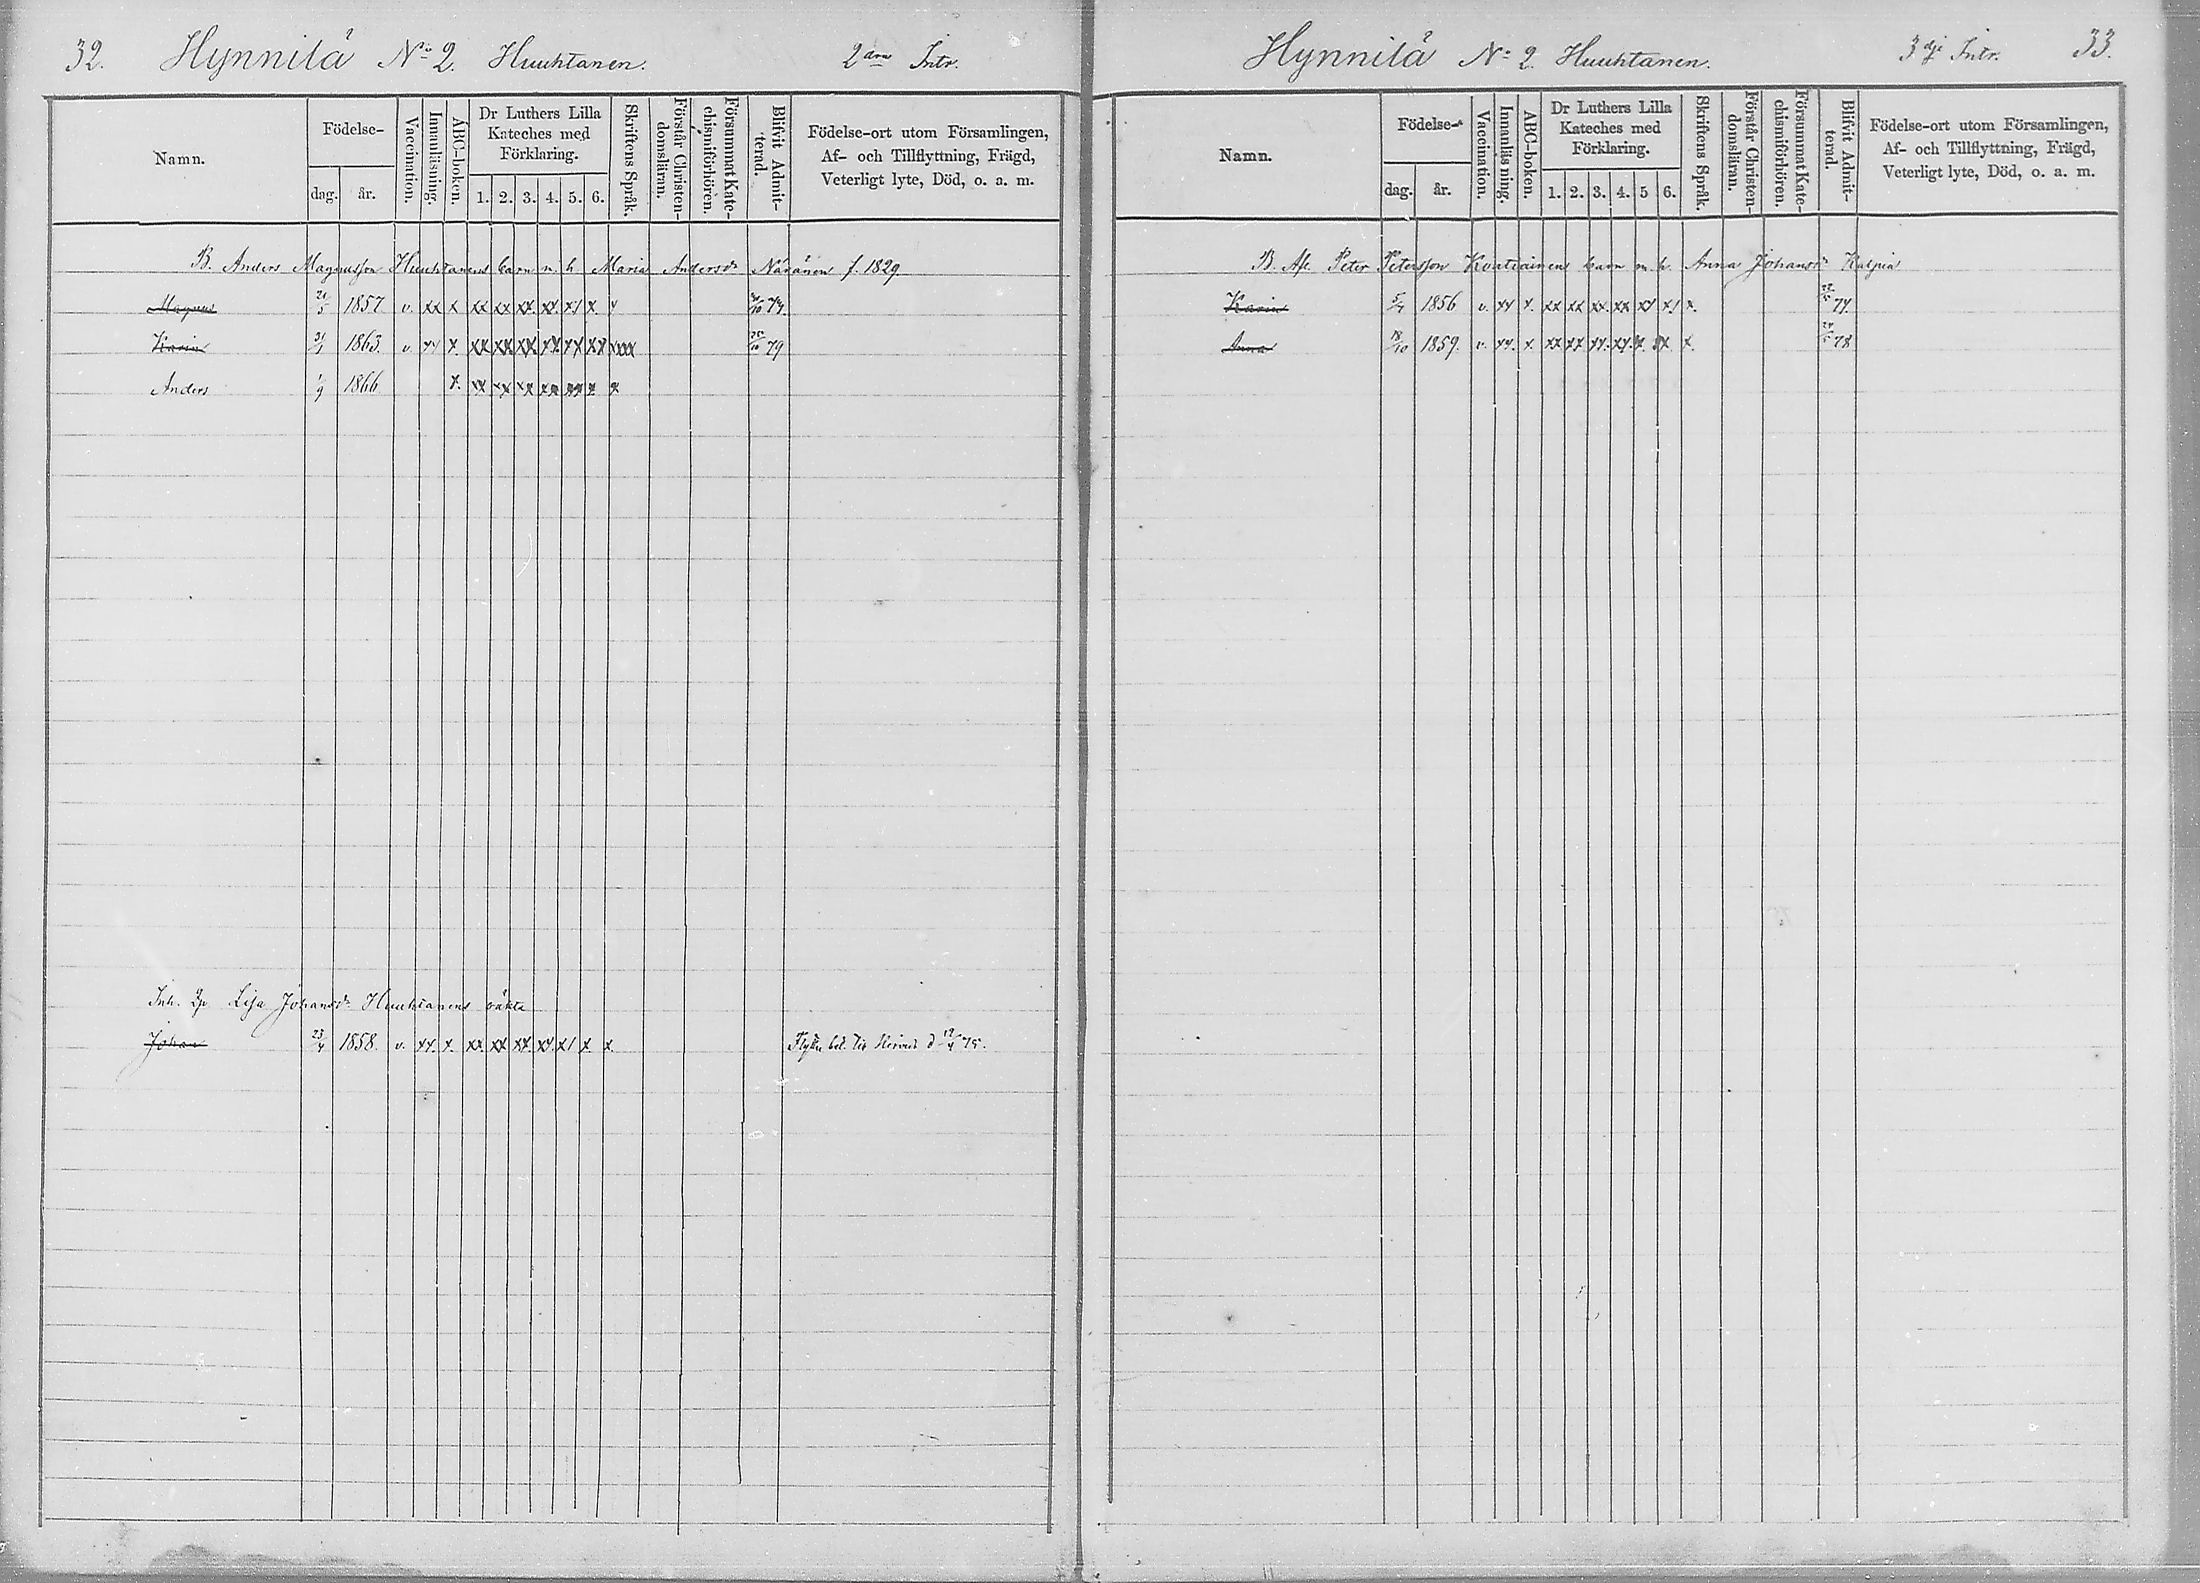 32. Hynnilä No 2. Huuhtanen. 2dra Intr.
Namn.
Födelse-
dag. år.
Vaccination.
Innanläsning.
ABC-boken.
Dr Luthers Lilla
Kateches med
Förklaring.
1. 2. 3. 4. 5. 6.
Skriftens Språk.
Förstår Christen-
domsläran.
Försummat Kate-
chismiförhören.
Blifvit Admit-
terad.
Födelse-ort utom Församlingen,
Af- och Tillflyttning, Frägd,
Veterligt lyte, Död, o. a. m.
B. Anders Magnusson Huuhtanens barn m. h. Maria Andersdr f. 1829
Magnus 1857. v. xx x xx xx xx. xx. x1 x. 74.
Karin 31/1 1863. v. xx x. xx xx xx xx xx xx xxx 25/10 79
Anders 1/9 1866. x. xx xx xx xx xx x x
Inh. Lisa Johansdr Huuhtanens oäkta
Johan 23/4 1858. v. xx. x. xx. xx xx. xx. x1 x. x. d 12/4 75.
Hynnilä No 2. Huuhtanen. 3dje Intr. 33.
Namn.
Födelse-
dag. år.
Vaccination.
Innanläsning.
ABC-boken.
Dr Luthers Lilla
Kateches med
Förklaring.
1. 2. 3. 4. 5 6.
Skriftens Språk.
Förstår Christen-
domsläran.
Försummat Kate-
chismiförhören.
Blifvit Admit-
terad.
Födelse-ort utom Församlingen,
Af- och Tillflyttning, Frägd,
Veterligt lyte, Död, o. a. m.
B. Peter Petersson Kontiainens barn m. h. Anna Johansdr
Karin 5/4 1856 v. xx x. xx xx xx. xx x1 x1 x. 77.
Anna 18/10 1859. v. xx. x xx xx xx. xx. x. xx. x. 78